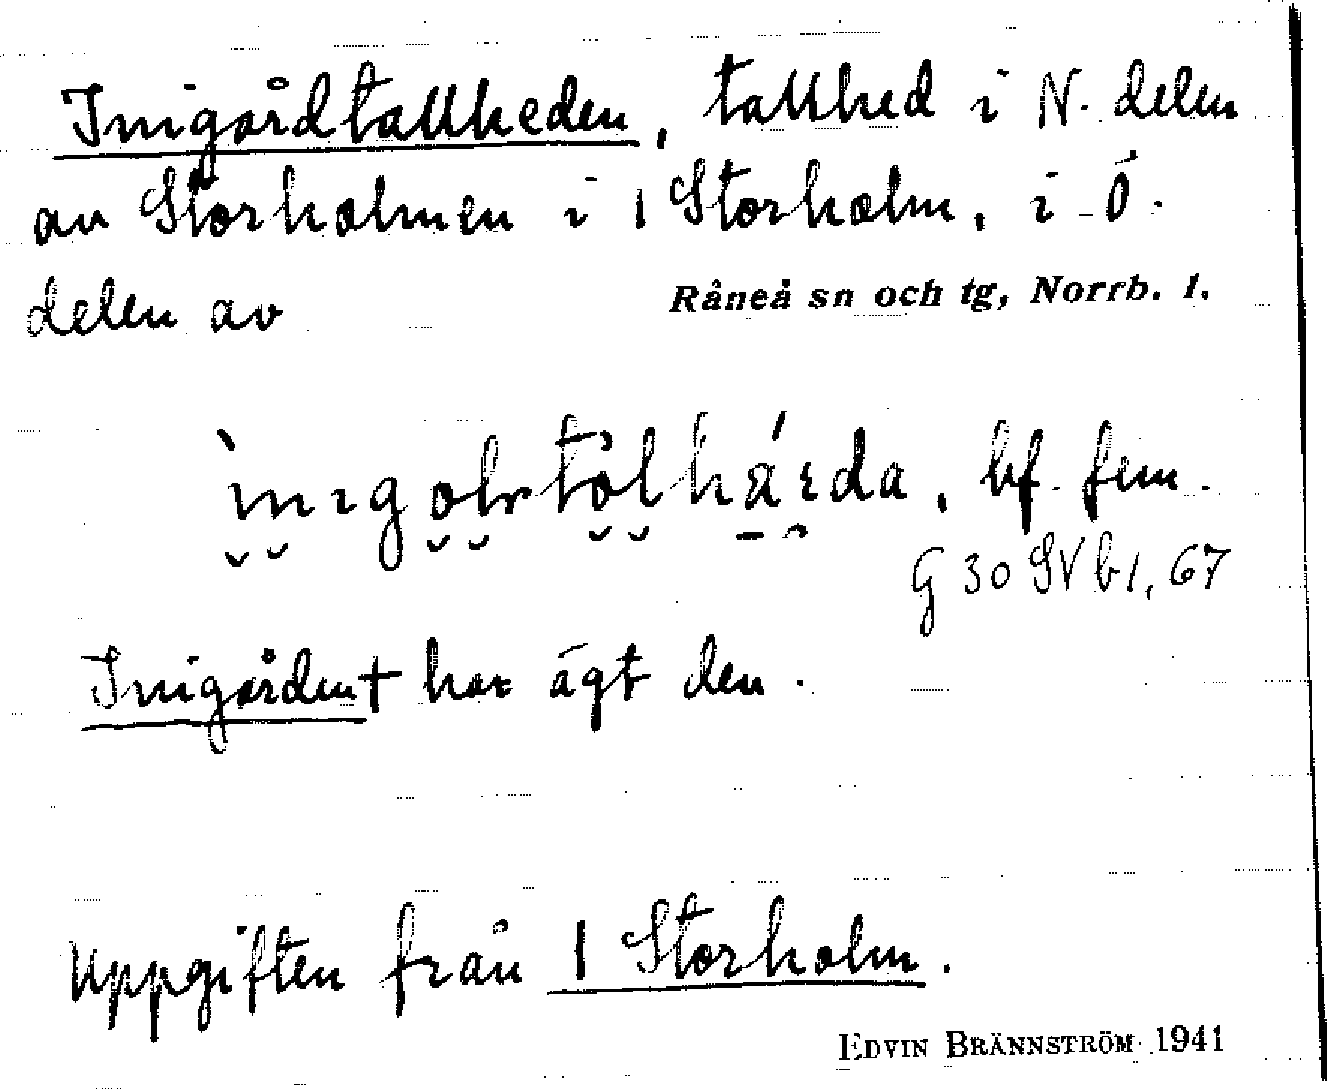 Inigårdtallheden, tallhed i N. delen
av Storholmen i 1 Storholm, i Ö.
delen av Råneå sn och tg, Norrb. l.
bf. fem.
G 30 SV b1, 67
Inigården† har ägt den.
Uppgiften från 1 Storholm.
EDVIN BRÄNNSTRÖM 1941